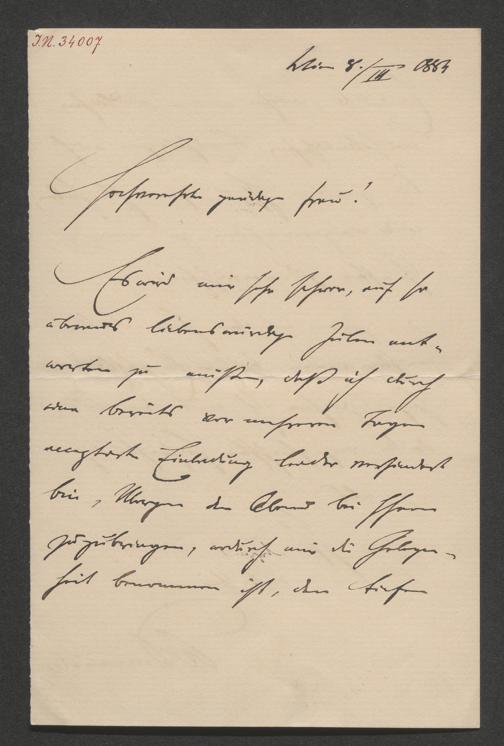 I.N. 34007
Wien 8./III 1884
Hochverehrte gnädige Frau!
Es wird mir sehr schwer, auf so
überaus liebenswürdige Zeilen ant-
worten zu müssen, daß ich durch
eine bereits vor mehreren Tagen
acceptirte Einladung leider verhindert
bin, Morgen den Abend bei Ihnen
zuzubringen, wodurch mir die Gelegen-
heit benommen ist, den tiefen